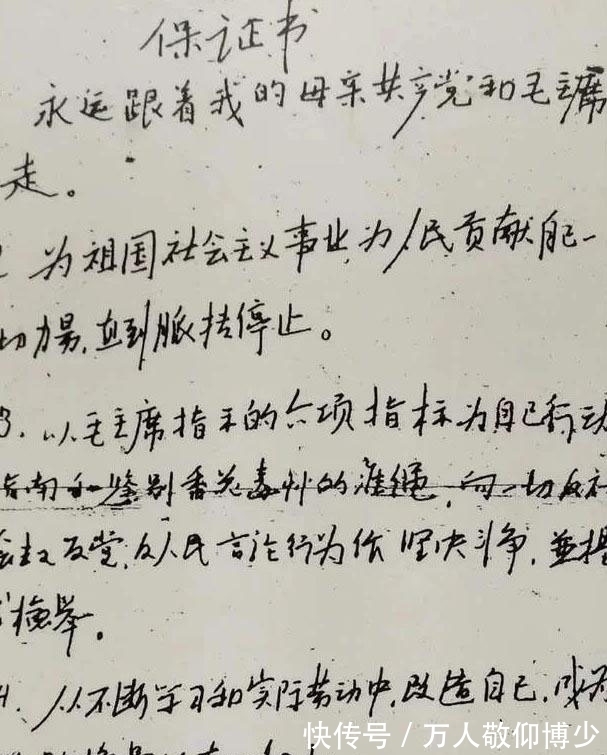 保证书
永远跟着我的母亲共产党和毛主席
走。
为祖国社会主义事业,为人民贡献自己一
切力量,直到脉搏停止。
3. 以毛主席指示的六项指标为自己行动
指南和鉴别香花毒草的准绳,向一切反社
会主义反党,反人民言论行为作坚决斗争,并
检举。
4. 从不断学习和实际劳动中,改造自己,成为
快传号 / 万人敬仰博少